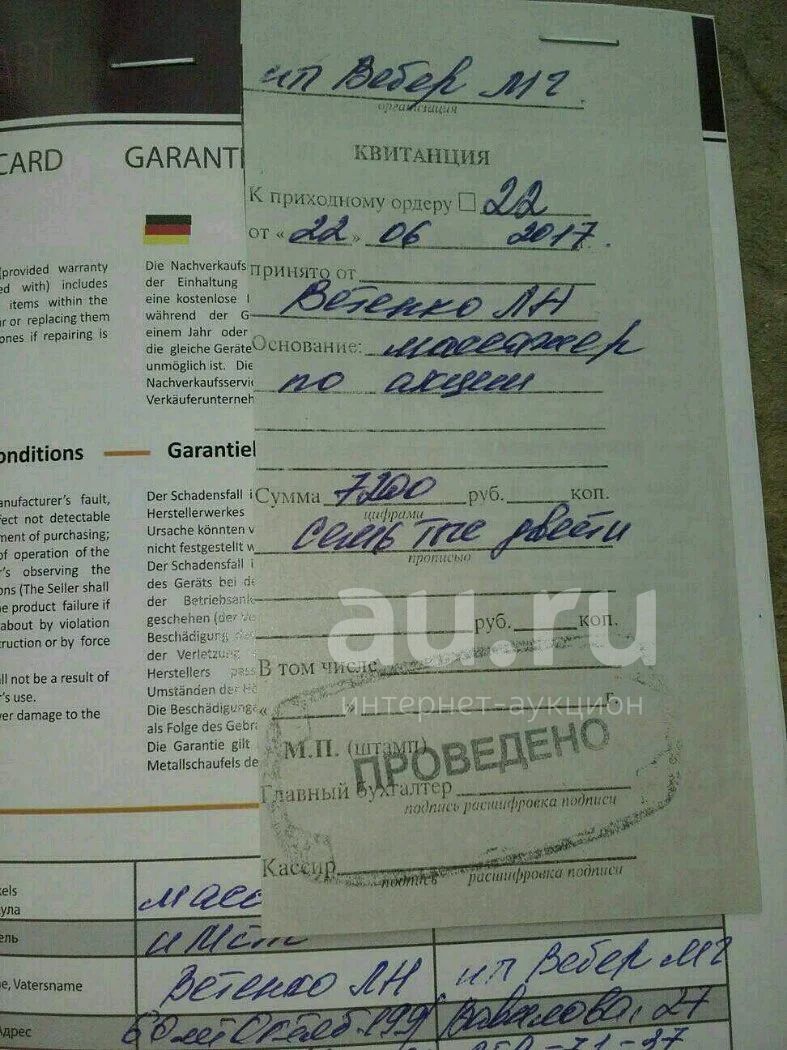 ип Вебер МГ
организация
КВИТАНЦИЯ
К приходному ордеру 22
от « 22 » 06 2017 .
принято от
Ветенко ЛН
Основание: массажер
по акции
Сумма 7200 руб. коп.
цифрами
Семь тыс двести
прописью
руб. коп.
В том числе
« г.
М.П. (штамп)
ПРОВЕДЕНО
Главный бухгалтер
подпись расшифровка подписи
Кассир
подпись расшифровка подписи
au.ru
интернет-аукцион
CARD GARANTI
(provided warranty
ed with) includes
items within the
ir or replacing them
ones if repairing is
Die Nachverkaufs
der Einhaltung
eine kostenlose
während der G
einem Jahr oder
die gleiche Geräte
unmöglich ist. Die
Nachverkaufsservi
Verkäuferunterneh
onditions
Garantie
anufacturer's fault,
fect not detectable
ment of purchasing;
of operation of the
r's observing the
ons (The Seller shall
e product failure if
about by violation
truction or by force
ll not be a result of
's use.
ver damage to the
Der Schadensfall i
Herstellerwerkes
Ursache könnten v
nicht festgestellt w
Der Schadensfall i
des Geräts bei de
der Betriebsanl
geschehen (der Ve
Beschädigung
der Verletzung
Herstellers pass
Umständen der Hö
Die Beschädigunge
als Folge des Gebra
Die Garantie gilt
Metallschaufels de
kels
ула
масс
ель
e, Vatersname
Ветенко ЛН
ип Вебер МГ
Адрес
60 лет Октяб. 199
Вавилова, 27